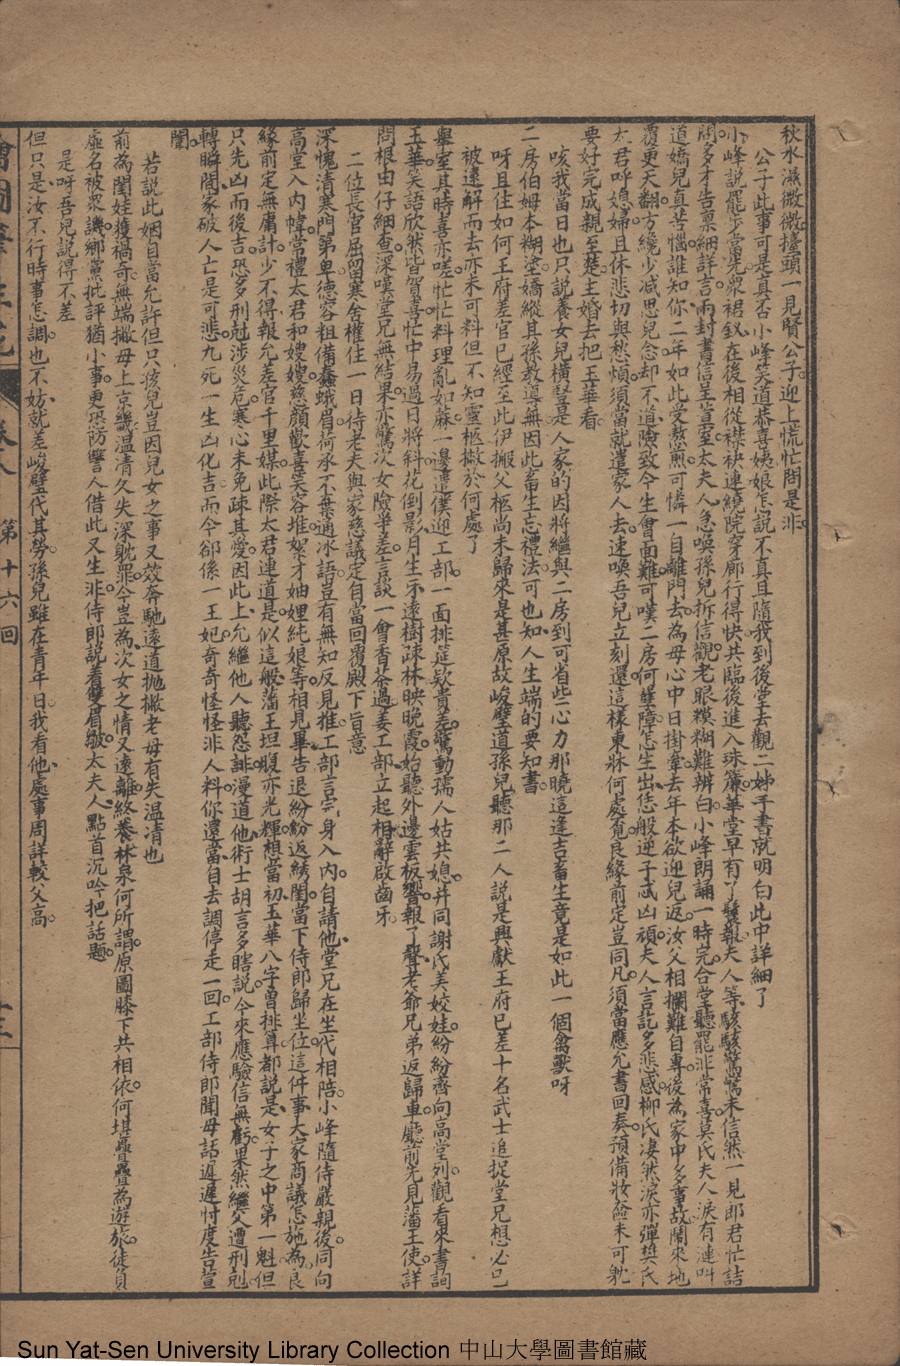 秋水濕微微擡頭一見賢公子迎上慌忙問是非
公子此事可是真否小峰笑道恭喜姨娘怎說不真且隨我到後堂去觀二姊手書就明白此中詳細了
小峰說罷步堂先衆裙釵在後相從襟袂連繞院穿廊行得快共臨後進入珠簾華堂早有了鬟報夫人等駭駭驚驚未信然一見郎君忙詰
問多才告稟細詳言兩封書信呈萱室太夫人急喚孫兒拆信觀老眼糢糊難辨白小峰朗誦一時完合堂聽罷非常喜莫氏夫人淚有漣叫
道嬌兒真苦惱誰知你二年如此受熬煎可憐一自離門去為母心中日掛牽去年本欲迎兒返汝父相攔難自專後為家中多事故鬧來地
覆更天翻方纔少減思兒念却不道險致今生會面難可嘆二房何孽障怎生出恁般逆子忒凶頑夫人言訖多悲感柳氏凄然淚亦彈樊氏
太君呼媳婦且休悲切與愁煩須當就遣家人去速喚吾兒立刻還這樣東牀何處覓良緣前定豈同凡須當應允書回奏預備妝奩未可躭
要好完成親至楚主婚去把玉華看
咳我當日也只說養女兒橫豎是人家的因將繼與二房到可省些心力那曉這逢吉畜生竟是如此一個禽獸呀
二房伯姆本糊塗嬌縱其孫教導無因此畜生忘禮法可也知人生端的要知書
呀且住如何王府差官已經至此伊搬父柩尚未歸來是甚原故峻璧道孫兒聽那二人說是興獻王府已差十名武士追捉堂兄想必已
被遠解而去亦未可料但不知靈柩撇於何處了
舉室其時喜亦嗟忙忙料理亂如蔴一邊遣僕迎工部一面排筵欵貴差驚動孺人姑共媳井同謝氏美姣娃紛紛齊向高堂列觀看來書詞
玉華笑語欣然皆賀喜忙中易過日將斜花倒影月生牙遠樹疎林映晚霞始聽外邊雲板響報了聲老爺兄弟返歸車廳前先見藩王使詳
問根由仔細查深嘆堂兄無結果亦驚次女險爭差言談一會香茶過姜工部立起相辭啟齒牙
二位長官屈留寒舍權住一日待老夫與家慈議定自當回覆殿下旨意
深愧清寒門第卑德容粗備蠢蛾眉荷承不棄通冰語豈有無知反見推工部言完身入內自請他堂兄在坐代相陪小峰隨侍嚴親後同向
高堂入內幃常禮太君和嫂嫂慈顏歡喜笑容堆絮才妯娌純娘等相見畢告退紛紛返綉閨當下侍郎歸坐位這件事大家商議怎施為良
緣前定無庸計少不得報允差官千里媒此際太君連道是似這般藩王坦腹亦光輝想當初玉華八字曾排算都說是女子之中第一魁但
只先凶而後吉恐多刑尅涉災危寒心未免疎其愛因此上允繼他人聽怨誹漫道他術士胡言多瞎說今來應驗信無虧果然繼父遭刑尅
轉瞬間家破人亡是可悲九死一生凶化吉而今卻係一王妃奇奇怪怪非人料你還當自去調停走一回工部侍郎聞母話遲遲忖度告萱
闈
若說此姻自當允許但只孩兒豈因兒女之事又效奔馳遠道抛撇老母有失温凊也
前為閨娃獲禍奇無端撇母上京畿温凊久失深躭罪今豈為次女之情又遠離終養林泉何所謂原圖膝下共相依何堪疊疊為遊旅徒負
虛名被衆譏鄉黨批評猶小事更恐防讐人借此又生非侍郎說着雙眉皺太夫人點首沉吟把話題
是呀吾兒說得不差
但只是汝不行時事怎調也不妨就差峻璧代其勞孫兒雖在青年日我看他處事周詳較父高
第十六回